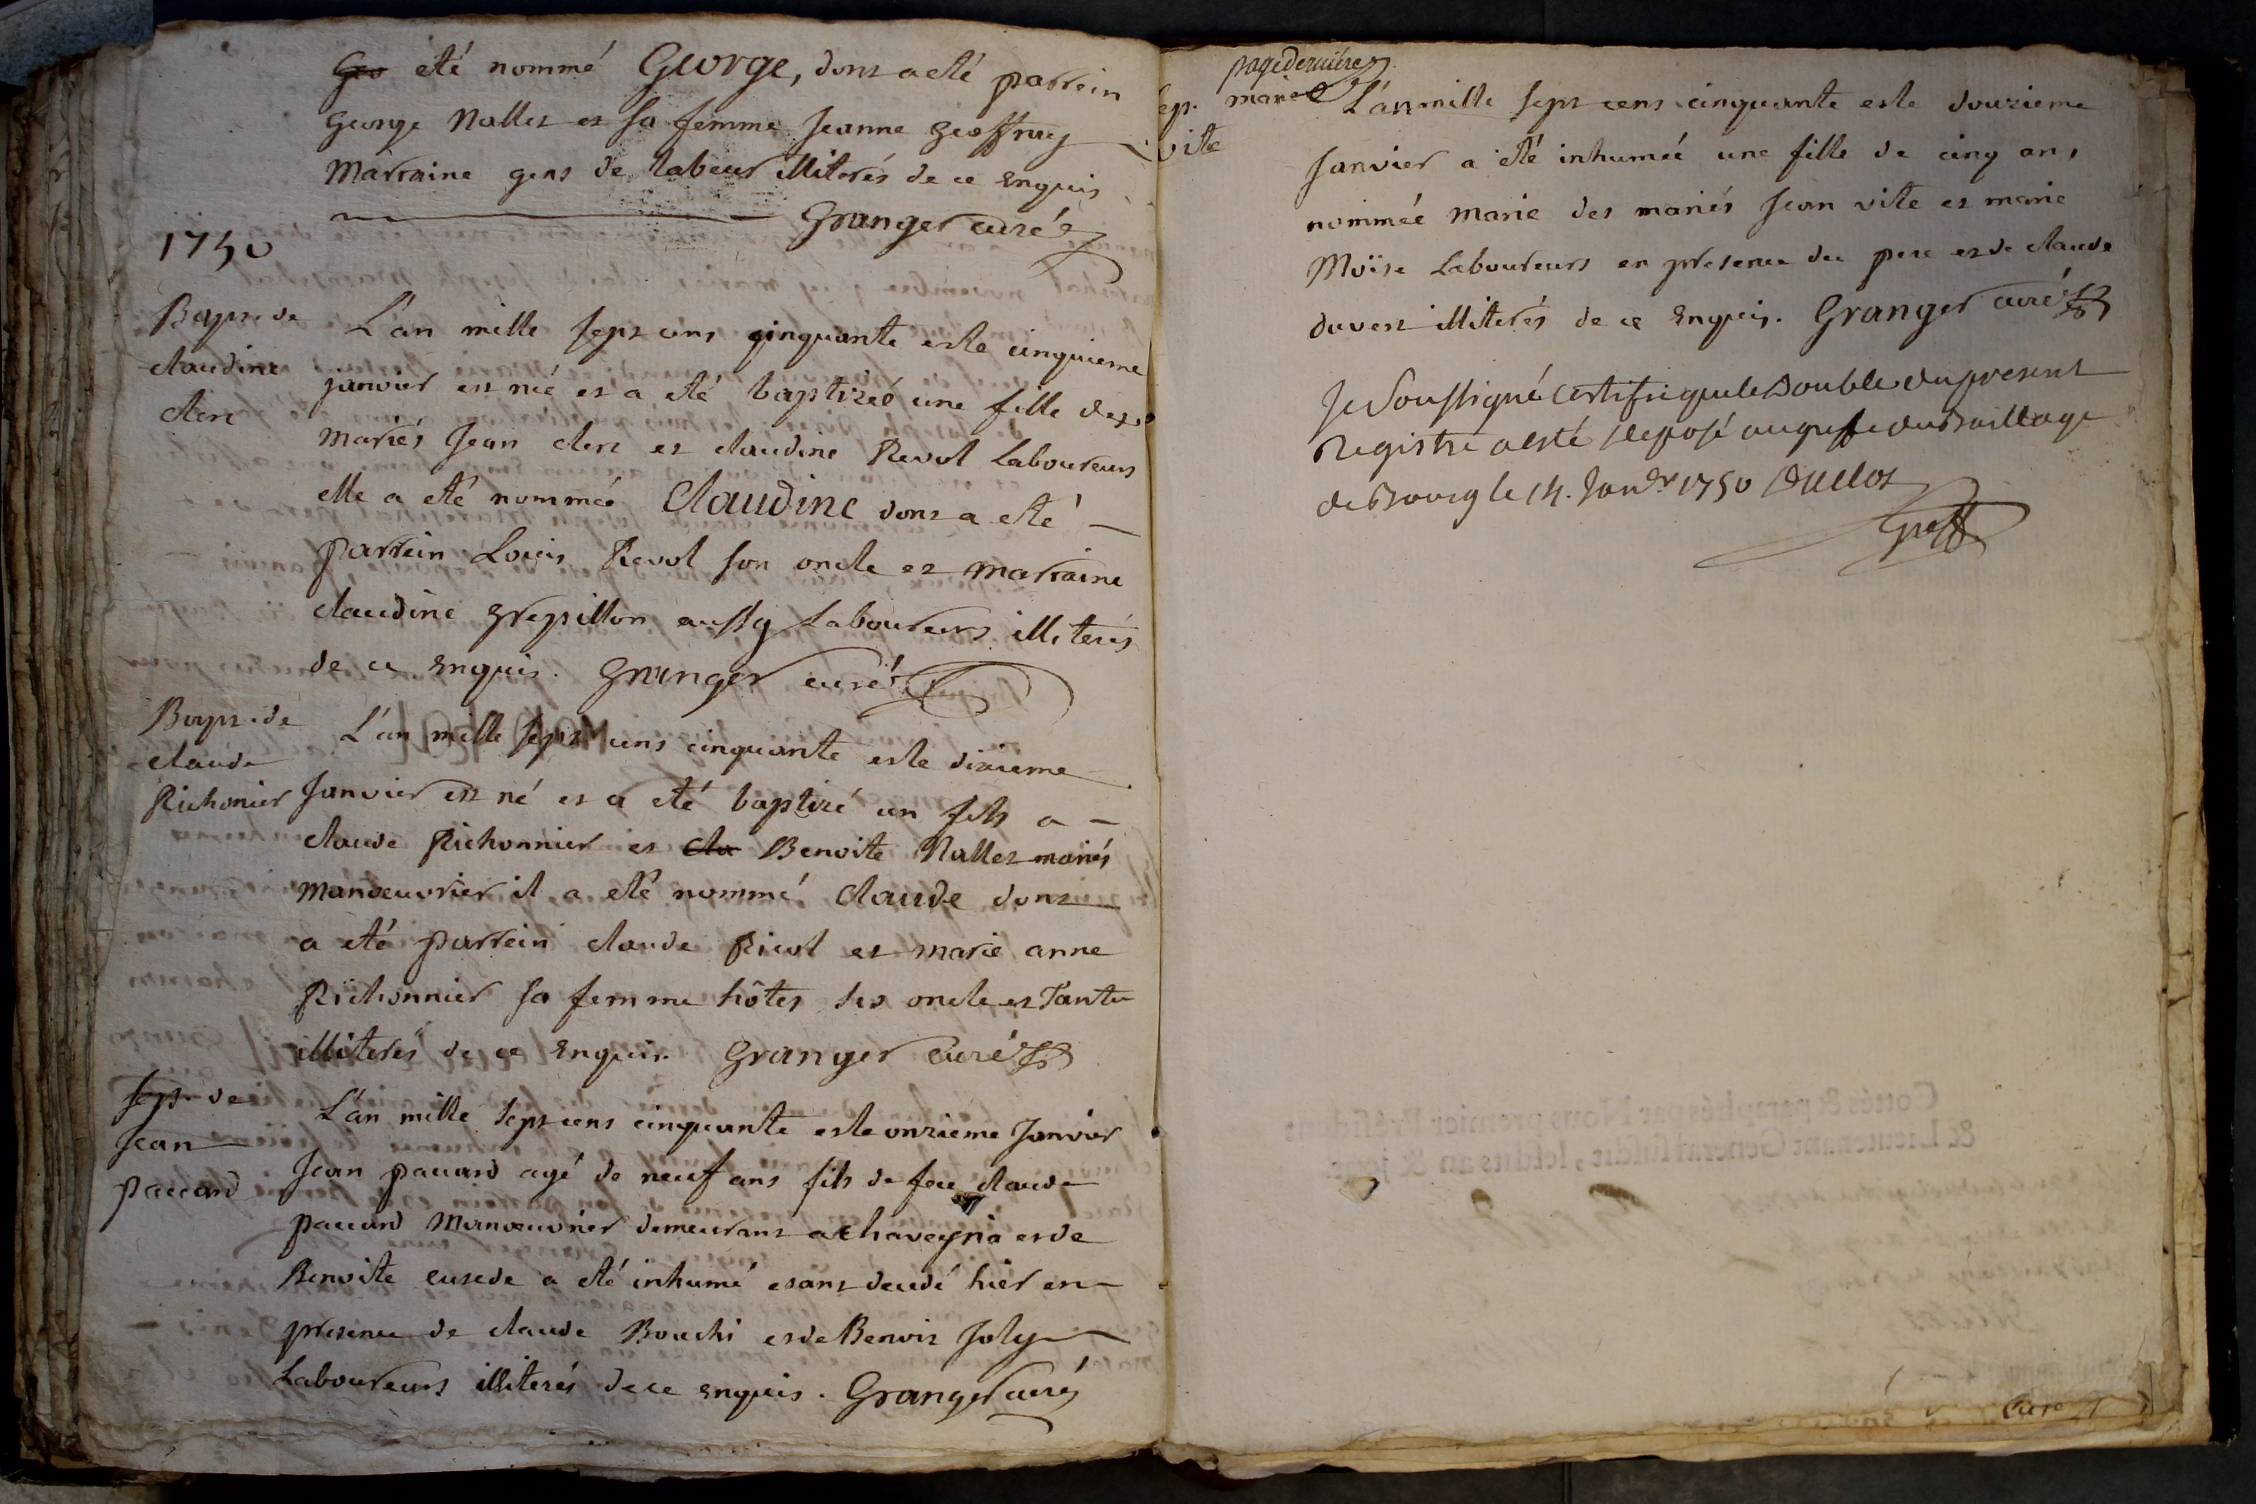 Geo eté nommé George, dont a eté parrein
George Nallet et sa femme Jeanne Geoffray
Marraine gens de labeur illiterés de ce enquis
Granger curé
1750
Bapt. de
claudine
clerc
L'an mille sept cens cinquante et le cinquieme
janvier est née et a eté baptizée une fille des
mariés Jean clerc et claudine Revol Laboureurs
elle a eté nommée Claudine dont a eté
parrein Louis Revol son oncle et marraine
claudine Grepillon aussy Laboureurs illiterés
de ce enquis. Granger curé
Bapt. de
claude
Richonier
L'an mille sept cens cinquante et le dixieme
Janvier est né et a eté baptizé un fils a
claude Richonnier et cla Benoite Nallet mariés
manoeuvrier il a eté nommé claude dont
a eté parrein claude Ricol et marie anne
Richonnier sa femme hôtes ses oncle et Tante
illiterés de ce enquis. Granger curé
Sept. de
Jean
paccard
L'an mille sept cens cinquante et le onzieme Janvier
Jean paccard agé de neuf ans fils de feu claude
paccard manoeuvrier demeurant a chaveyria et de
Benoite cusede a eté inhumé etant decedé hier en
presence de claude Bouchi et de Benoit Joly
Laboureurs illiterés de ce enquis. Granger curé
page derniere
Sep. marie
vite
L'an mille sept cens cinquante et le douzieme
Janvier a eté inhumée une fille de cinq ans,
nommée marie des mariés Jean vite et marie
Moïse Laboureurs en presence du pere et de claude
duvert illiterés de ce enquis. Granger curé
Je Soussigné Certifie que le Double du present
Registre a esté deposé au greffe du Bailliage
de Bourg le 14. Janvr 1750 Duclos
Greff
Cottés & paraphés par Nous premier Président
& Lieutenant General susdit, lesdits an & jour
curé